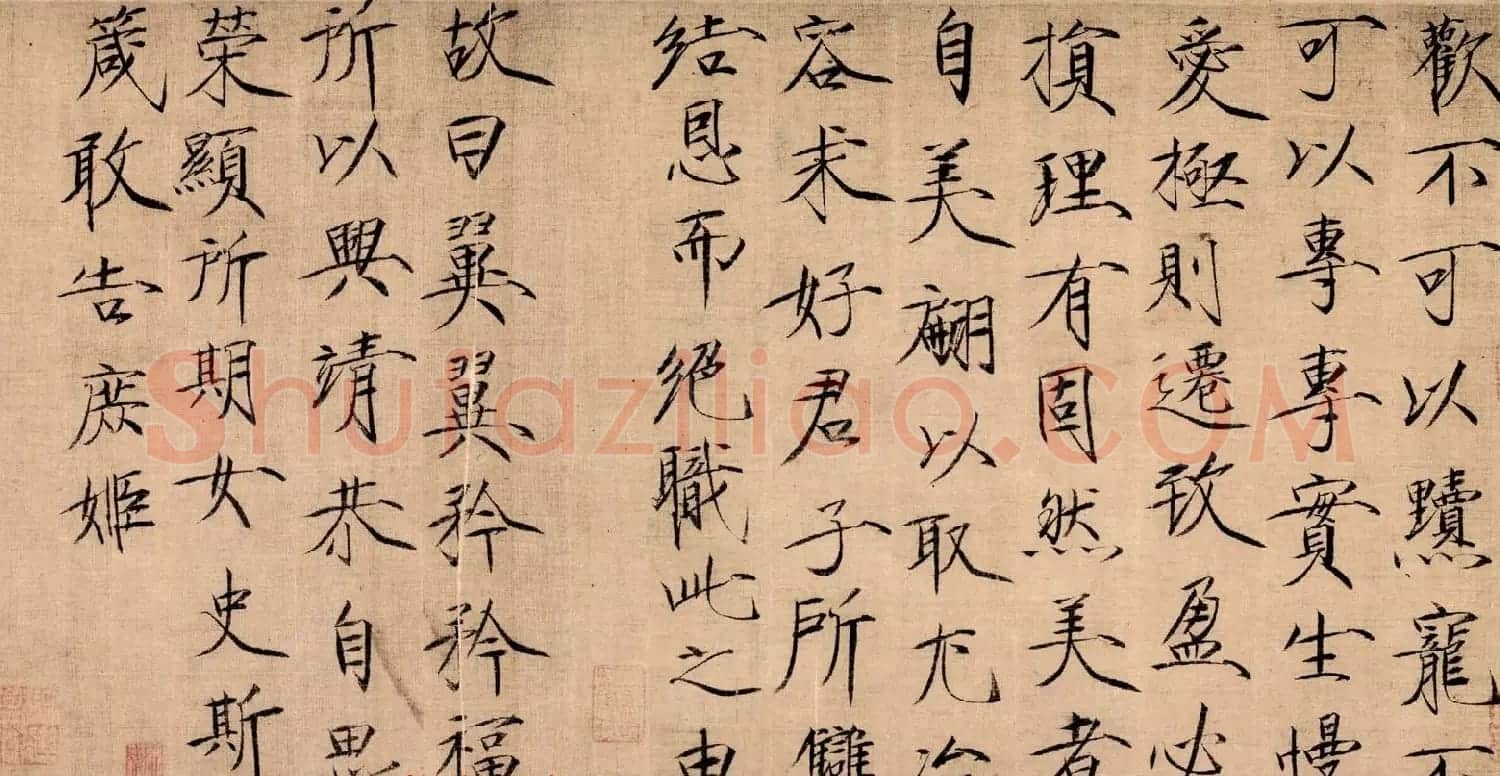 歡不可以黷寵不
可以專專實生慢
愛極則遷致盈必
損理有固然美者
自美翩以取尤冶
容求好君子所讎
結恩而絶職此之由
故曰翼翼矜矜福
所以興靖恭自思
榮顯所期女史斯
箴敢告庶姬
Shufaziliao.COM